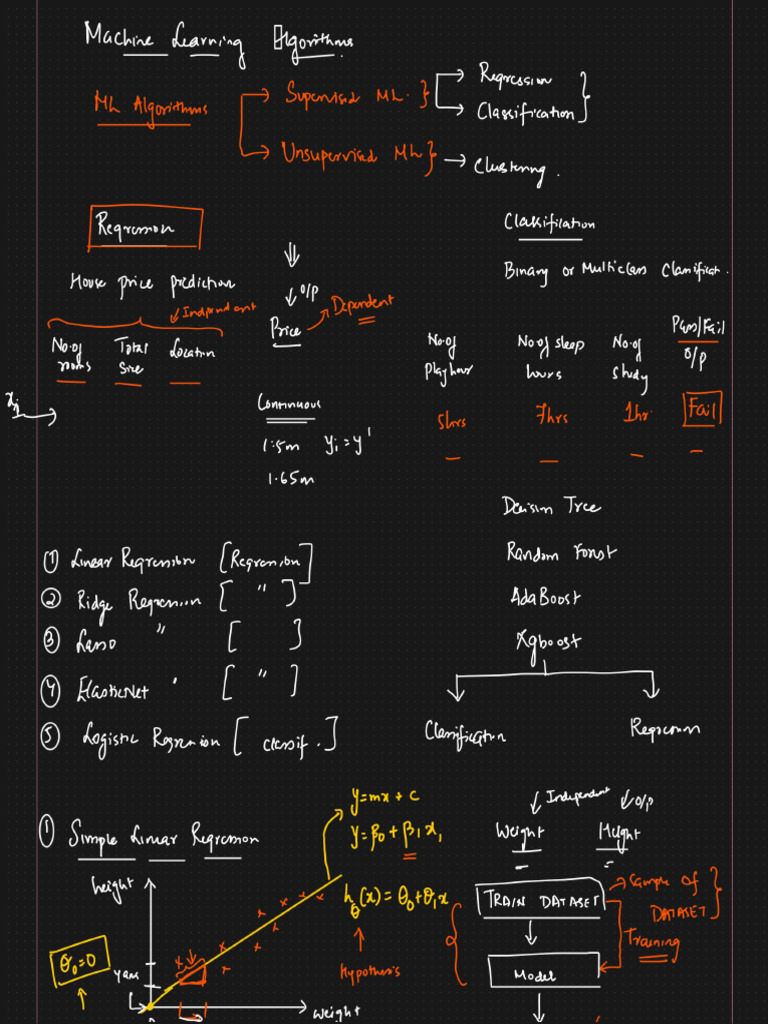 Machine Learning Algorithms
ML Algorithms
Supervised ML
Regression
Classification
Unsupervised ML
Clustering.
Regression
House price prediction
Independent
O/P
Price
Dependent
No. of rooms
Total Size
Location
Continuous
1.5m yi = y'
1.65m
Classification
Binary or Multiclass Classificat.
No. of play hour
No. of sleep hours
No. of study
Pass/Fail
O/P
5hrs
7hrs
1hr.
Fail
① Linear Regression [Regression]
② Ridge Regression [ " ]
③ Lasso " [ ]
④ ElasticNet " [ " ]
⑤ Logistic Regression [classif.]
Decision Tree
Random Forest
AdaBoost
Xgboost
Classification
Regression
① Simple Linear Regression
y = mx + c
y = β0 + β1 x1
hθ(x) = θ0 + θ1x
Hypothesis
height
θ0 = 0
weight
Independent
O/P
Weight
Height
TRAIN DATASET
Sample of
DATASET
Training
Model